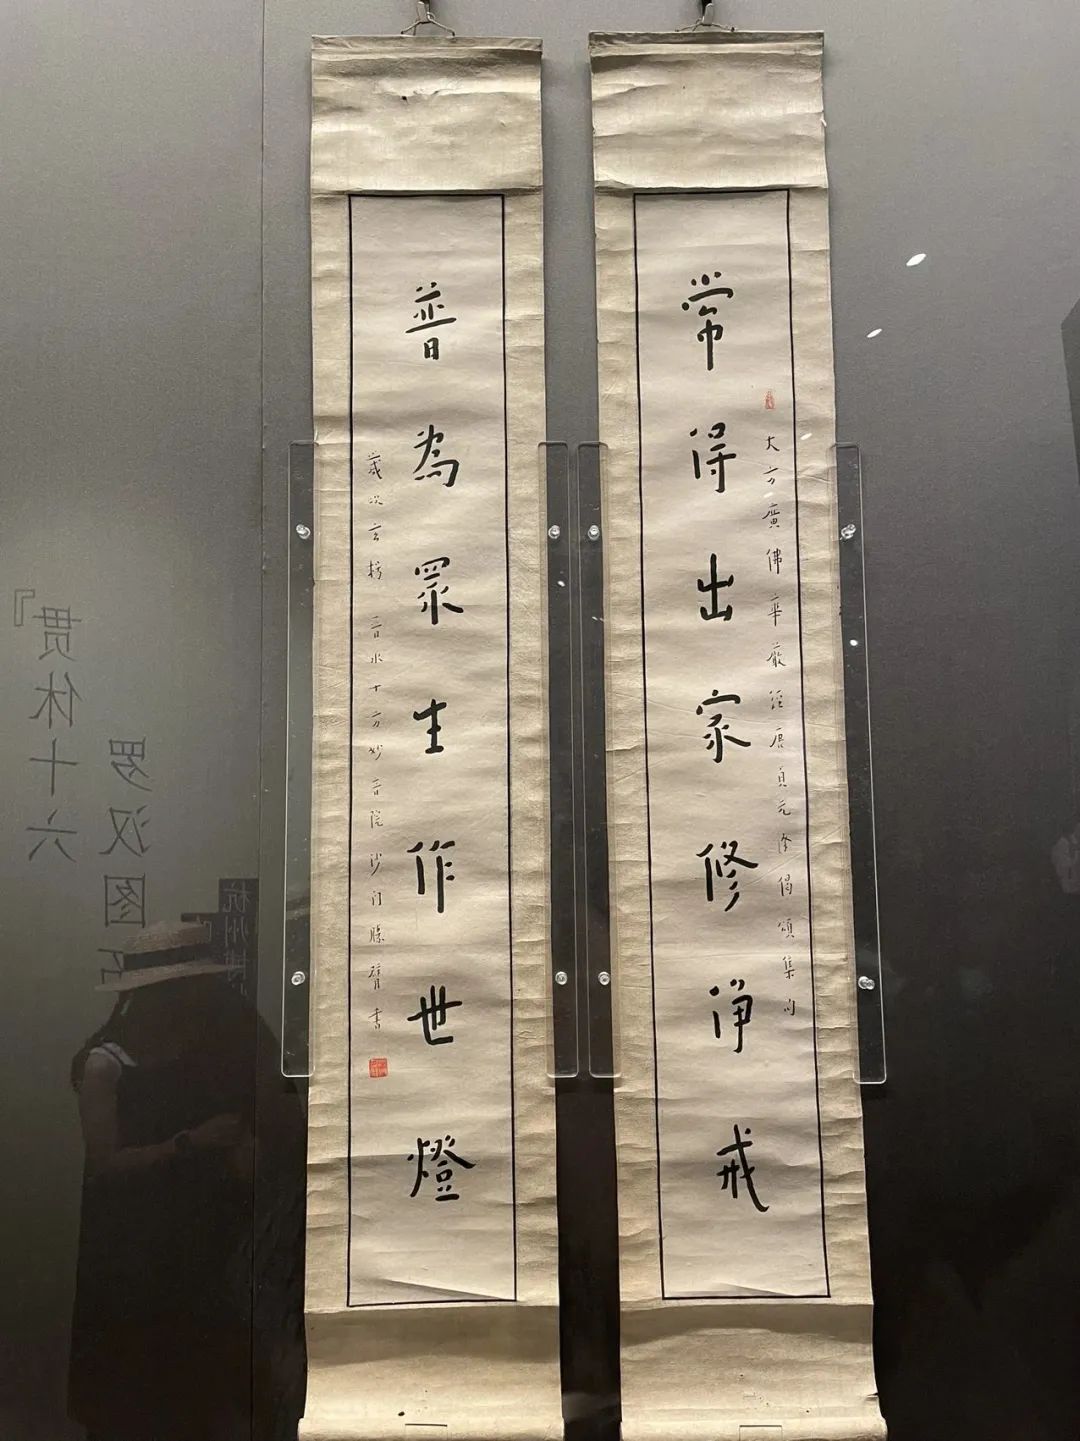 常得出家修淨戒
大方廣佛華嚴經唐貞元譯偈頌集句
普為眾生作世燈
歲次玄枵 晉水十方妙音院沙門勝臂書
贯休十六』
罗汉图石
杭州博